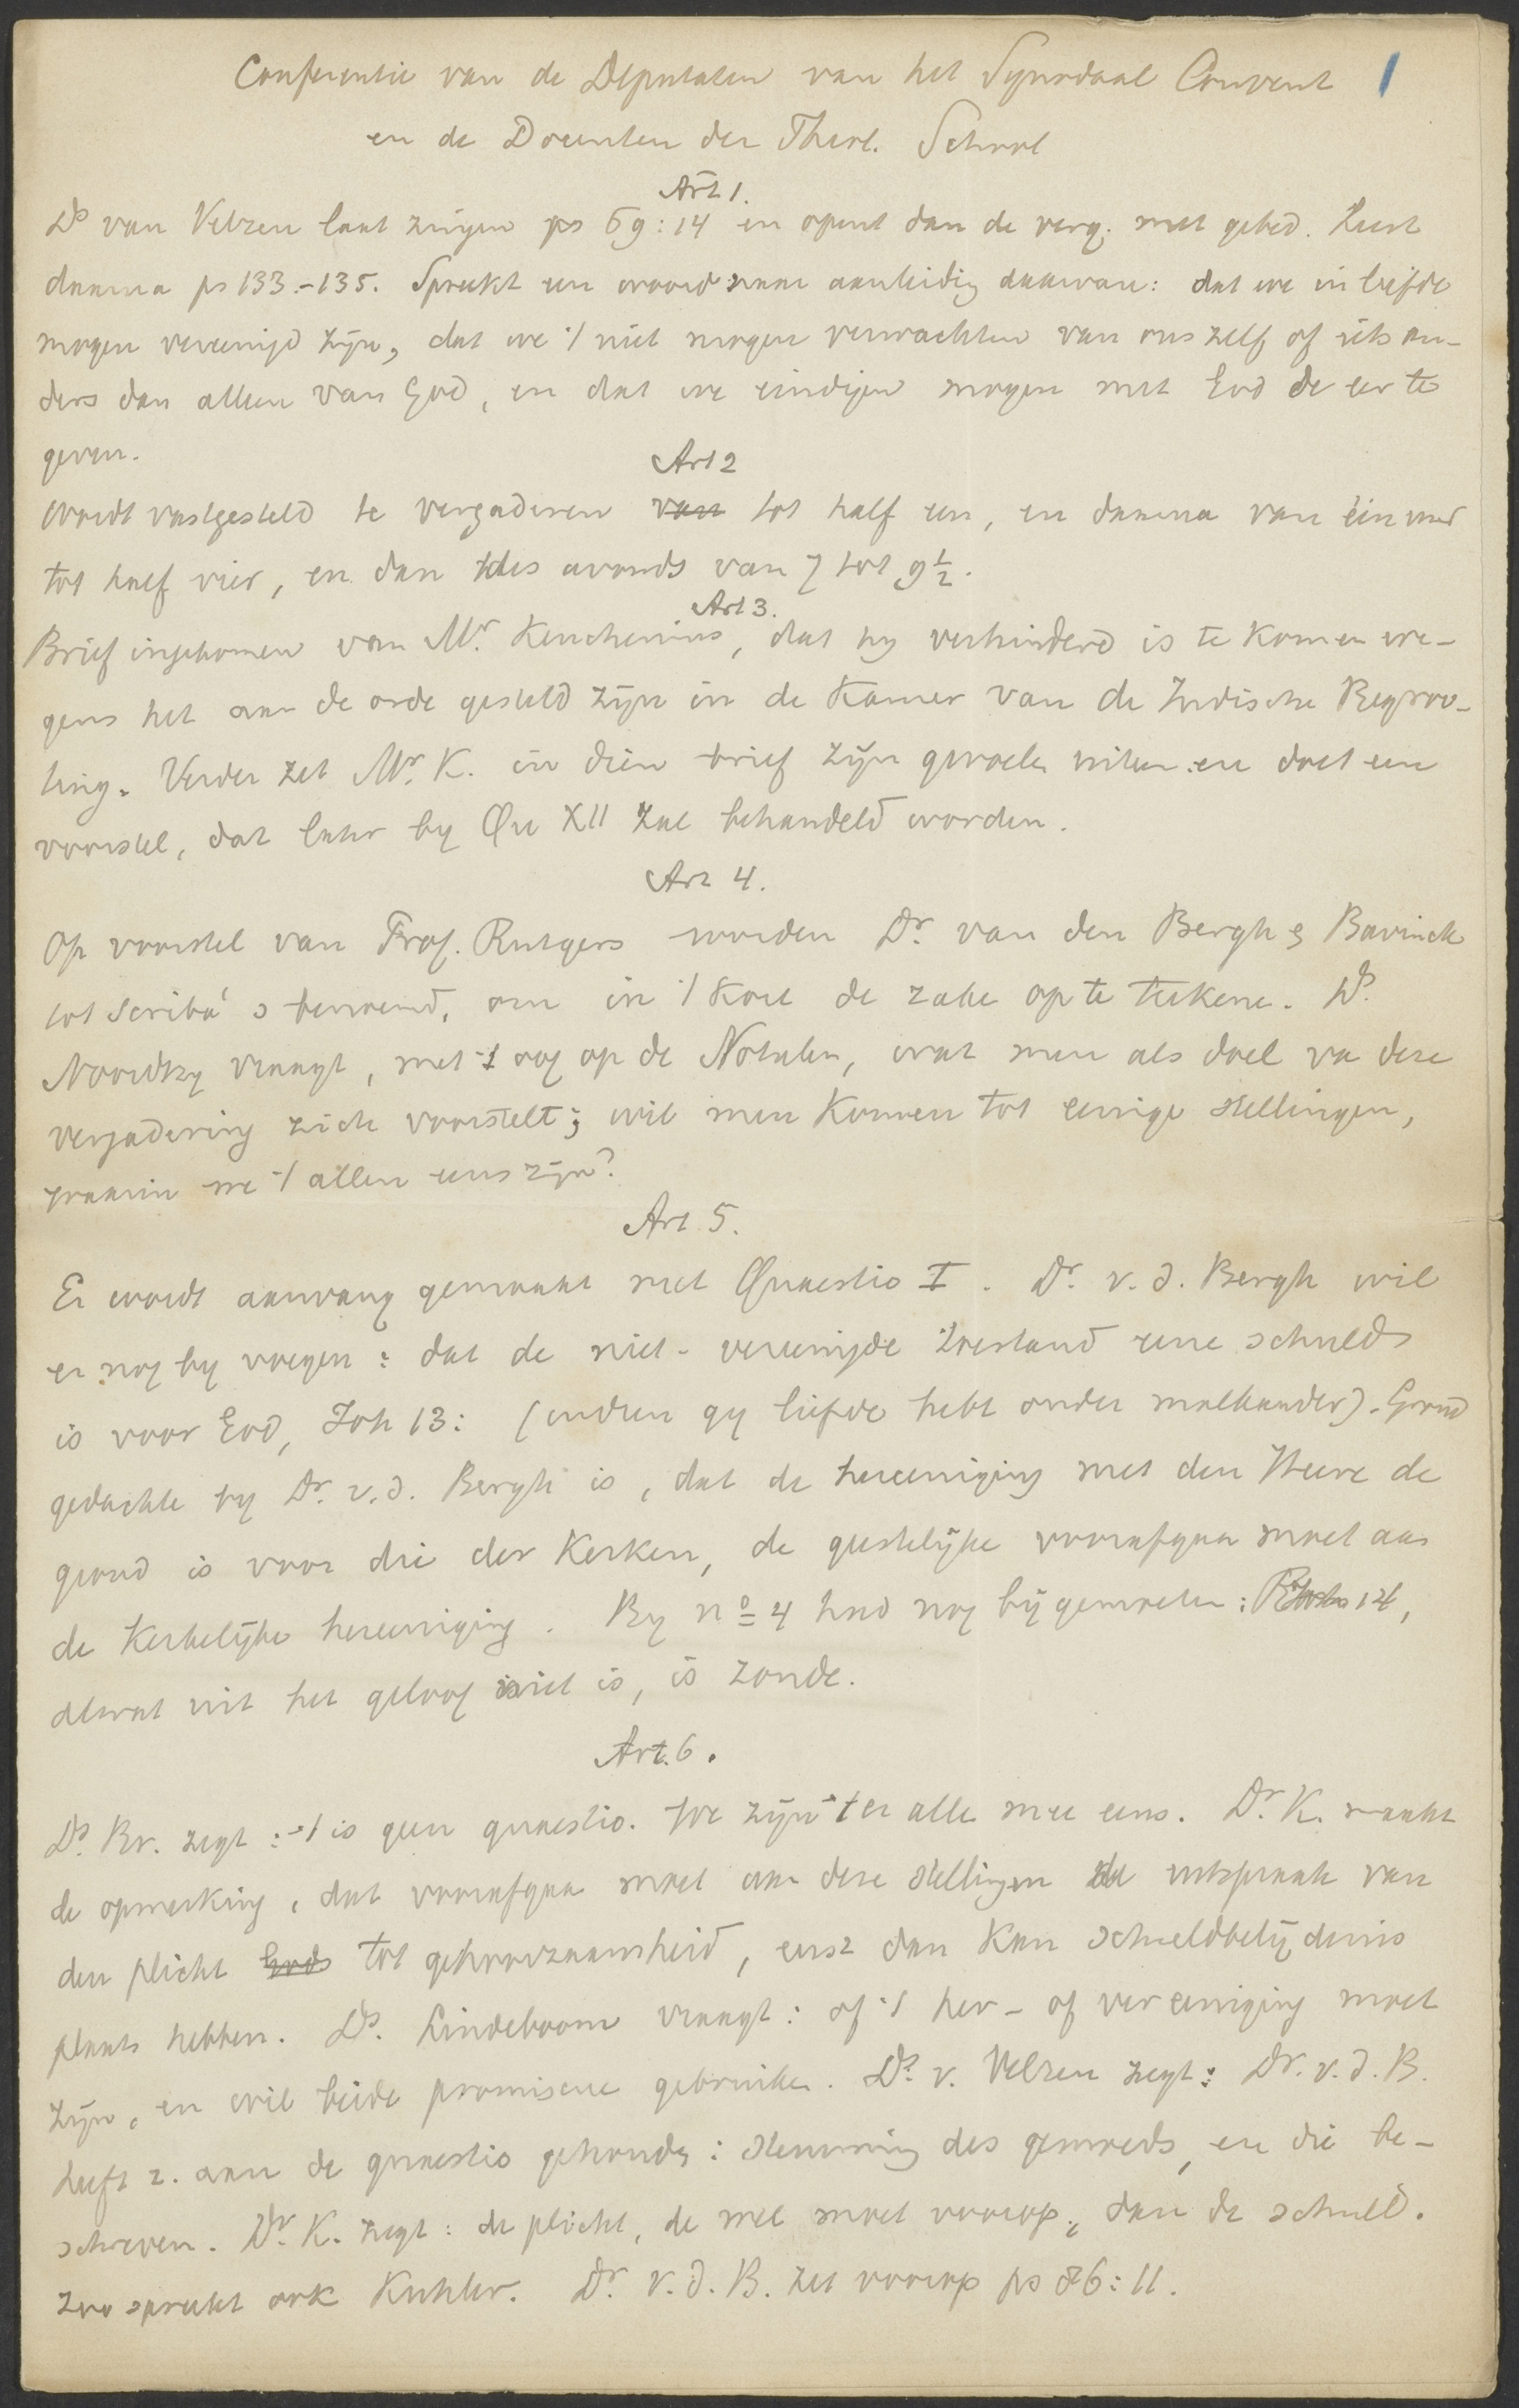 Conferentie van de Deputaten van het Synodaal Convent 1
en de Docenten der Theol. School
Art 1.
Ds van Velzen laat zingen ps 69:14 en opent dan de verg. met gebed. Leest
daarna ps 133.-135. Spreekt een woord naar aanleidig daarvan: dat we in liefde
mogen vereenigd zijn, dat we 't niet mogen verwachten van ons zelf of iets an-
ders dan alleen van God, en dat we eindigen mogen met God de eer te
geven.
Art 2
Wordt vastgesteld te vergaderen van tot half een, en daarna van één uur
tot half vier, en dan des avonds van 7 tot 9½.
Art 3.
Brief ingekomen van Mr. Keuchenius, dat hy verhinderd is te komen we-
gens het aan de orde gesteld zijn in de Kamer van de Indische Begroo-
ting. Verder zet Mr. K. in dien brief zijn gevoelen uiteen en doet een
voorstel, dat later by Qu XII zal behandeld worden.
Art 4.
Op voorstel van Prof. Rutgers worden Dr. van den Bergh & Bavinck
tot scriba's benoemd, om in 't kort de zake op te teekene. Ds.
Noordtzy vraagt, met 't oog op de Notulen, wat men als doel va deze
vergadering zich voorstelt; wil men komen tot eenige stellingen,
waarin we 't allen eens zijn?
Art 5.
Er wordt aanvang gemaakt met Quaestio I. Dr. v. d. Bergh wil
er nog by voegen: dat de niet-vereenigde toestand eene schuld
is voor God, Joh 13: (indien gy liefde hebt onder malkander). Grond
gedachte by Dr. v. d. Bergh is, dat de hereeniging met den Heere de
grond is voor die der Kerken, de geestelijke voorafgaan moet aan
de kerkelijke hereeniging. By no 4 had nog bij gemoeten: 14,
alwat uit het geloof niet is, is zonde.
Art. 6.
Ds. Br. zegt: 't is geen quaestio. We zijn 't er alle mee eens. Dr. K. maakt
de opmerking, dat voorafgaan moet aan deze stellingen de uitspraak van
den plicht Gods tot gehoorzaamheid, eerst dan kan schuldbelijdenis
plaats hebben. Ds. Lindeboom vraagt: of 't her- of vereeniging moet
zijn, en wil beide promiscue gebruiken. Ds. v. Velzen zegt: Dr. v. d. B.
heeft z. aan de quaestio gehouden: stemming des gemoeds, en die be-
schreven. Dr. K. zegt: de plicht, de wet moet voorop, dan de schuld.
Zoo spreekt ook Kohler. Dr. v. d. B. zet voorop ps 86:11.